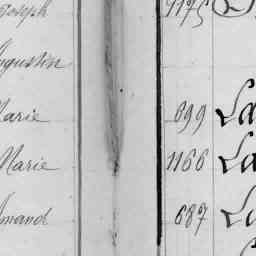 Joseph 1175
Augustin
Marie 699 La
Marie 1166 La
Amand 687 La